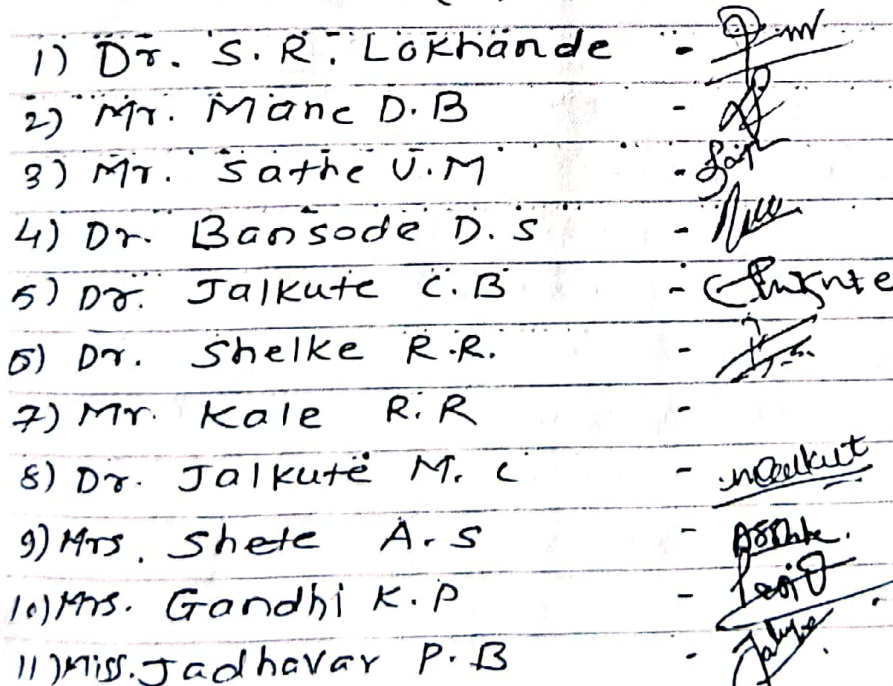 1) Dr. S. R. Lokhande -
2) Mr. Mane D.B -
3) Mr. Sathe U.M -
4) Dr. Bansode D.S -
5) Dr. Jalkute C.B -
6) Dr. Shelke R.R. -
7) Mr. Kale R.R -
8) Dr. Jalkute M. C -
9) Mrs. Shete A.S -
10) Mrs. Gandhi K.P -
11) Miss. Jadhavar P.B -